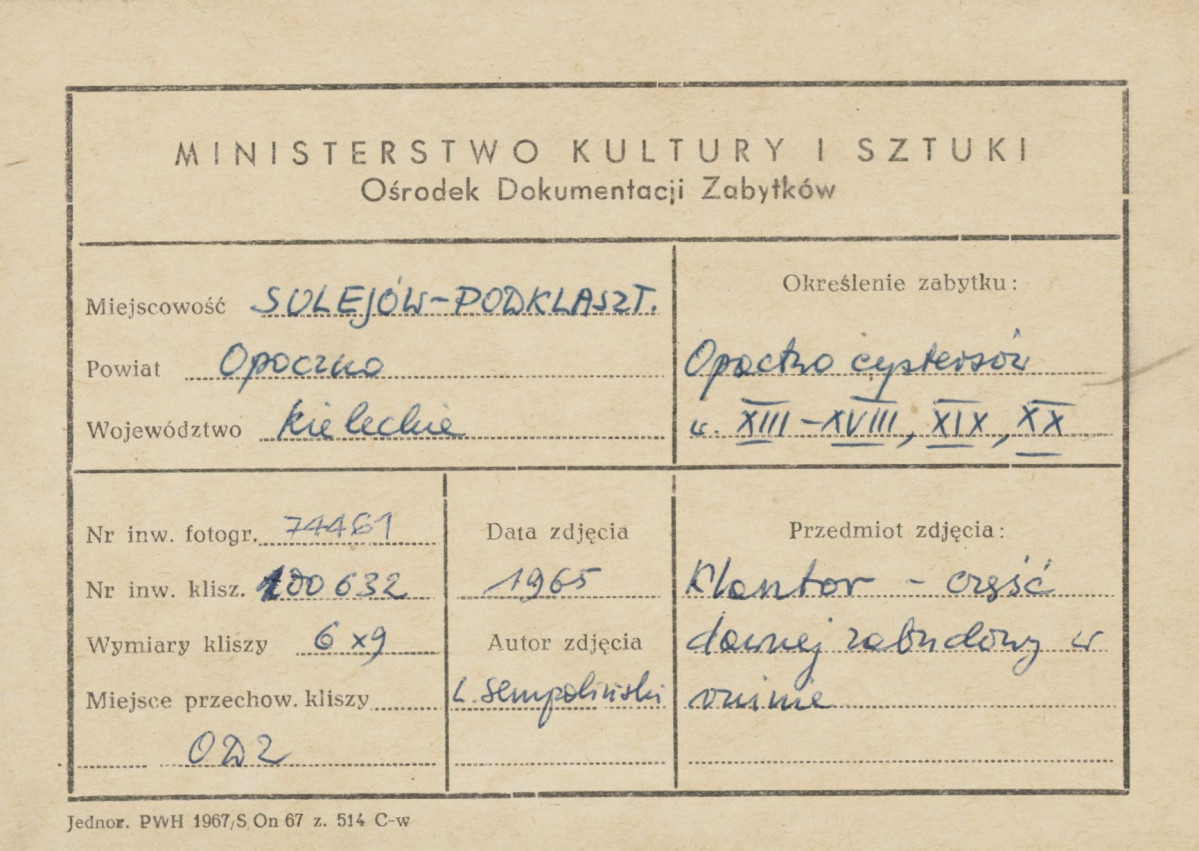 MINISTERSTWO KULTURY I SZTUKI
Ośrodek Dokumentacji Zabytków
Miejscowość SULEJÓW-PODKLASZT.
Powiat Opoczno
Województwo kieleckie
Określenie zabytku:
Opactwo cystersów
w. XIII-XVIII, XIX, XX
Nr inw. fotogr. 74461
Nr inw. klisz. 100632
Wymiary kliszy 6x9
Miejsce przechow. kliszy
ODZ
Data zdjęcia
1965
Autor zdjęcia
L. Sempoliński
Przedmiot zdjęcia:
Klasztor - część
dawnej zabudowy w
ruinie
Jednor. PWH 1967/S On 67 z. 514 C-w